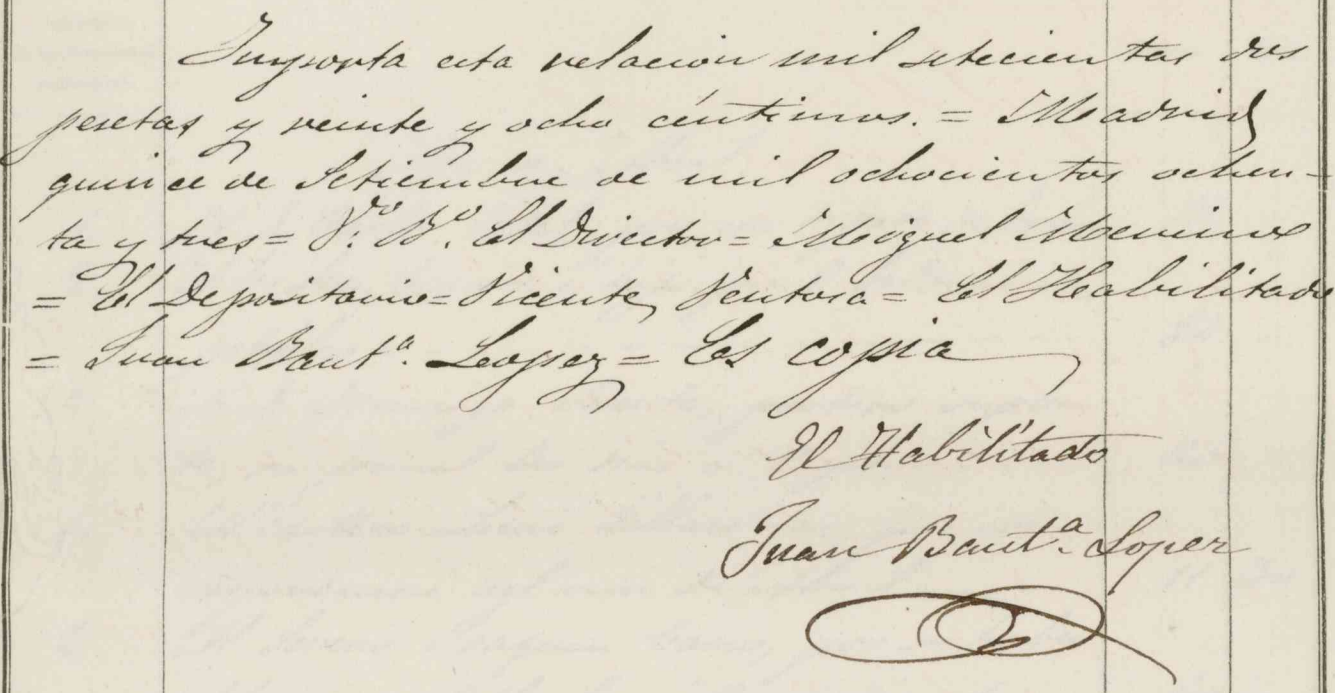 Importa esta relacion mil setecientas dos
pesetas y veinte y ocho céntimos. = Madrid
quince de Setiembre de mil ochocientos ochen-
ta y tres = Vº. Bº. El Director = Miguel Merino
= El Depositario = Vicente Ventosa = El Habilitado
= Juan Bautª. Lopez = Es copia
El Habilitado
Juan Bautª. Lopez